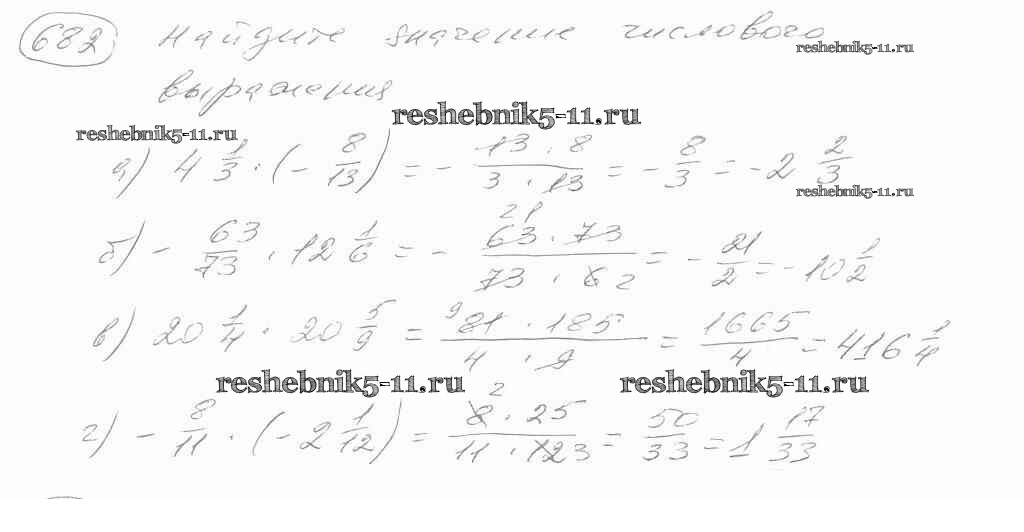 682 Найдите значение числового
reshebnik5-11.ru
выражения
reshebnik5-11.ru
reshebnik5-11.ru
а) 4 1/3 · (- 8/13) = - 13 · 8 / 3 · 13 = - 8/3 = -2 2/3
reshebnik5-11.ru
б) - 63/73 · 12 1/6 = - 21 63 · 73 / 73 · 6 2 = - 21/2 = - 10 1/2
в) 20 1/4 · 20 5/9 = 9 81 · 185 / 4 · 9 = 1665/4 = 416 1/4
reshebnik5-11.ru reshebnik5-11.ru
г) - 8/11 · (- 2 1/12) = 2 8 · 25 / 11 · 12 3 = 50/33 = 1 17/33